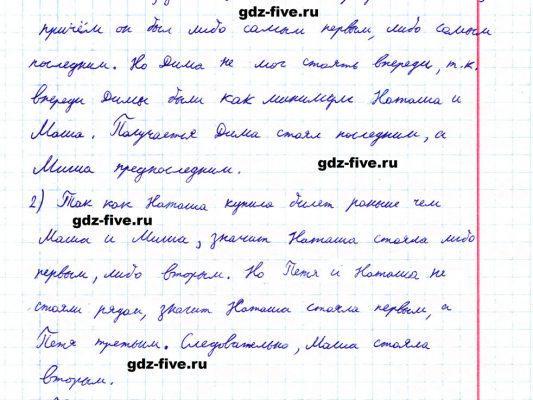 gdz-five.ru
причём он был либо самым первым, либо самым
последним. Но Дима не мог стоять впереди, т.к.
впереди Димы были как минимум Наташа и
Маша. Получается Дима стоял последним, а
Миша предпоследним.
gdz-five.ru
2) Так как Наташа купила билет раньше чем
gdz-five.ru
Маша и Миша, значит Наташа стояла либо
первым, либо вторым. Но Петя и Наташа не
стояли рядом, значит Наташа стояла первым, а
Петя третьим. Следовательно, Маша стояла
gdz-five.ru
вторым.